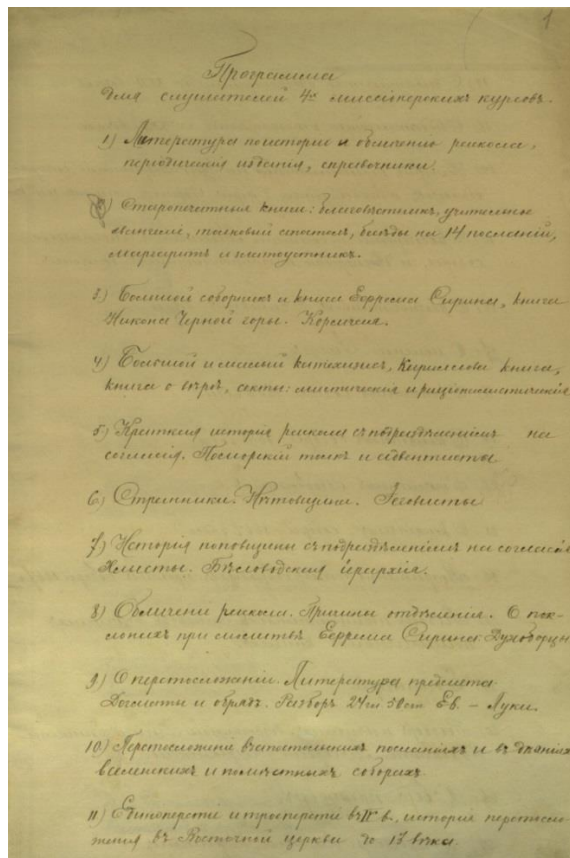 1
Программа
для слушателей 4х миссионерскихъ курсовъ.
1) Литература по исторіи и обличенію раскола,
періодическія изданія, справочники.
2) Старопечатныя книги: благовѣстникъ, учительное
евангеліе, толковый апостолъ, бесѣды на 14 посланій,
маргаритъ и златоустникъ.
3) Большой соборникъ и книга Ефрема Сирина, книга
Никона Черной горы. Кормчая.
4) Большой и малый катехизисъ, Кириллова книга,
книга о вѣрѣ, секты: мистическія и раціоналистическія
5) Краткая исторія раскола съ подраздѣленіемъ на
согласія. Поморскій толкъ и адвентисты
6) Странники. Нѣтовщина. Іеговисты
7) Исторія поповщины съ подраздѣленіемъ на согласія
Хлысты. Бѣловодская іерархія.
8) Обличеніе раскола. Причины отдѣленія. О пок-
лонахъ при молитвѣ Ефрема Сирина. Духоборцы
9) О перстосложеніи. Литература предмета
Догматы и обрядъ. Разборъ 24гл 50ст Ев. - Луки.
10) Перстосложеніе въ апостольскихъ посланіяхъ и въ дѣяніяхъ
вселенскихъ и помѣстныхъ соборахъ
11) Единоперстіе и троеперстіе въ в., исторія перстосло-
женія въ Восточной церкви до 13 вѣка.